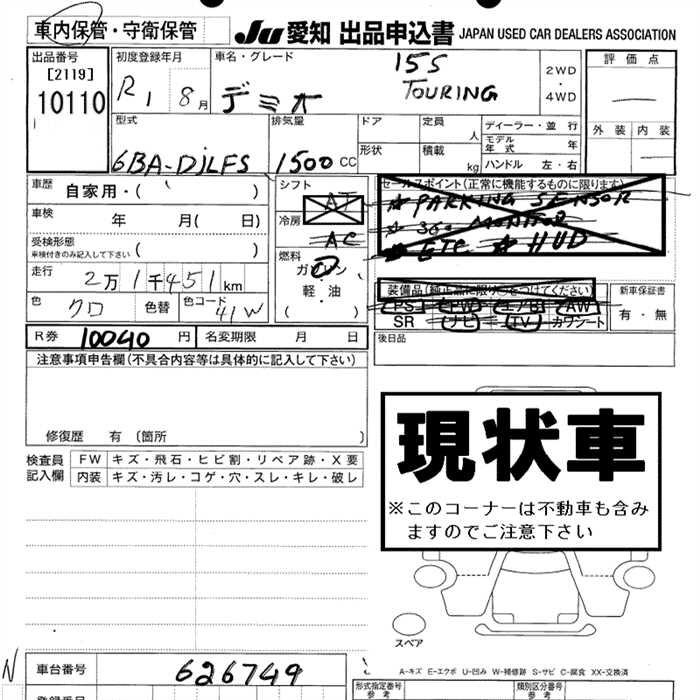 車内保管・守衛保管
JU 愛知 出品申込書 JAPAN USED CAR DEALERS ASSOCIATION
出品番号 [2119] 10110
初度登録年月 R1 8月
車名・グレード デミオ 15S TOURING
2WD ・ 4WD
評価点
外装 内装
型式 6BA-DJLFS
排気量 1500 CC
ドア
定員 人
形状
積載 kg
ディーラー・並行
モデル年式 年
ハンドル 左・右
車歴 自家用・( )
シフト AT
冷房 AC
燃料 ガソリン 軽・油 ( )
セールスポイント(正常に機能するものに限ります)
★ PARKING SENSOR
★ 360 MONITOR
★ ETC ★ HUD
車検 年 月( 日)
受検形態 車検付きのみ記入して下さい ( )
走行 2万1千451km
色 クロ 色替 色コード 41W
装備品(純正品に限り○をつけてください)
PS PW エアB AW
SR ナビ TV カワシート
新車保証書 有・無
R券 10040 円 名変期限 月 日
後日品
注意事項申告欄(不具合内容等は具体的に記入して下さい)
修復歴 有 〔箇所 〕
検査員記入欄
FW キズ・飛石・ヒビ割・リペア跡・X要
内装 キズ・汚レ・コゲ・穴・スレ・キレ・破レ
現状車
※このコーナーは不動車も含み
ますのでご注意下さい
スペア
N 車台番号 626749
A-キズ E-エクボ U-凹み W-補修跡 S-サビ C-腐食 XX-交換済
登録番号
形式指定番号 参考
類別区分番号 参考